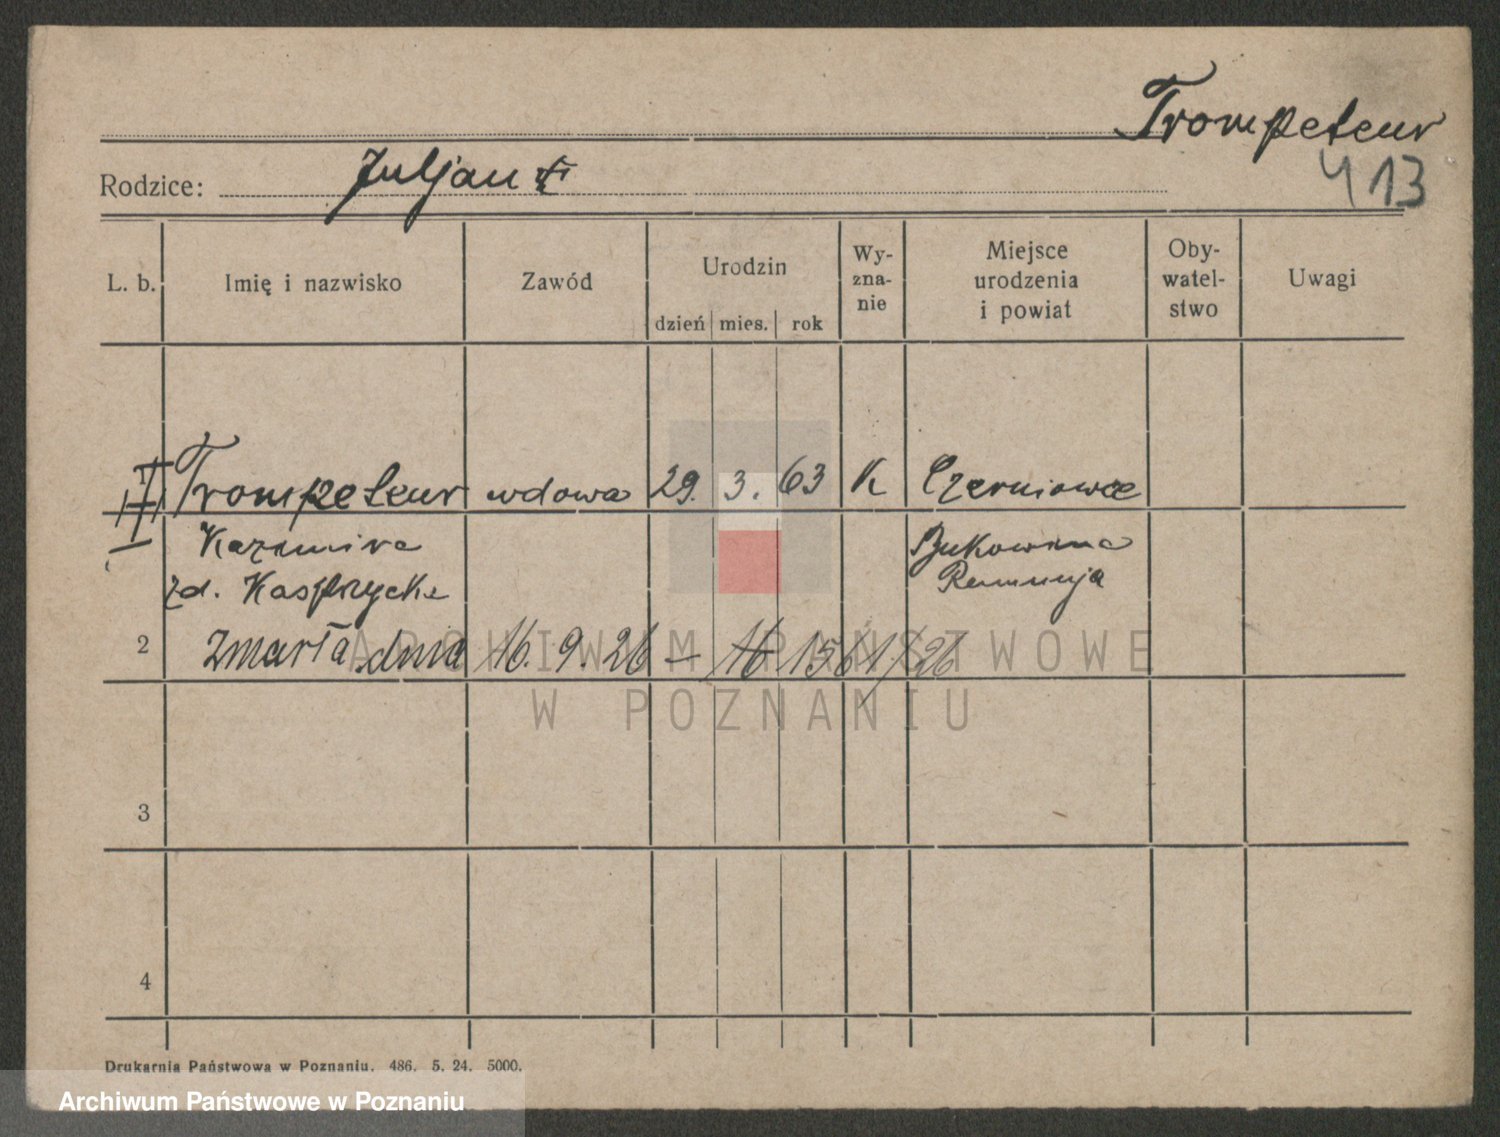 Trompeteur
Rodzice: Juljan
413
L. b. Imię i nazwisko Zawód Urodzin dzień mies. rok Wy-zna-nie Miejsce urodzenia i powiat Oby-watel-stwo Uwagi
Trompeteur wdowa 29. 3. 63 K Czerniowce
Kazimira Bukowina
zd. Kasprzycki Rumunja
2 Zmarła dnia 16. 9. 26 – 1561/26
3
4
Drukarnia Państwowa w Poznaniu. 486. 5. 24. 5000.
ARCHIWUM PAŃSTWOWE
W POZNANIU
Archiwum Państwowe w Poznaniu